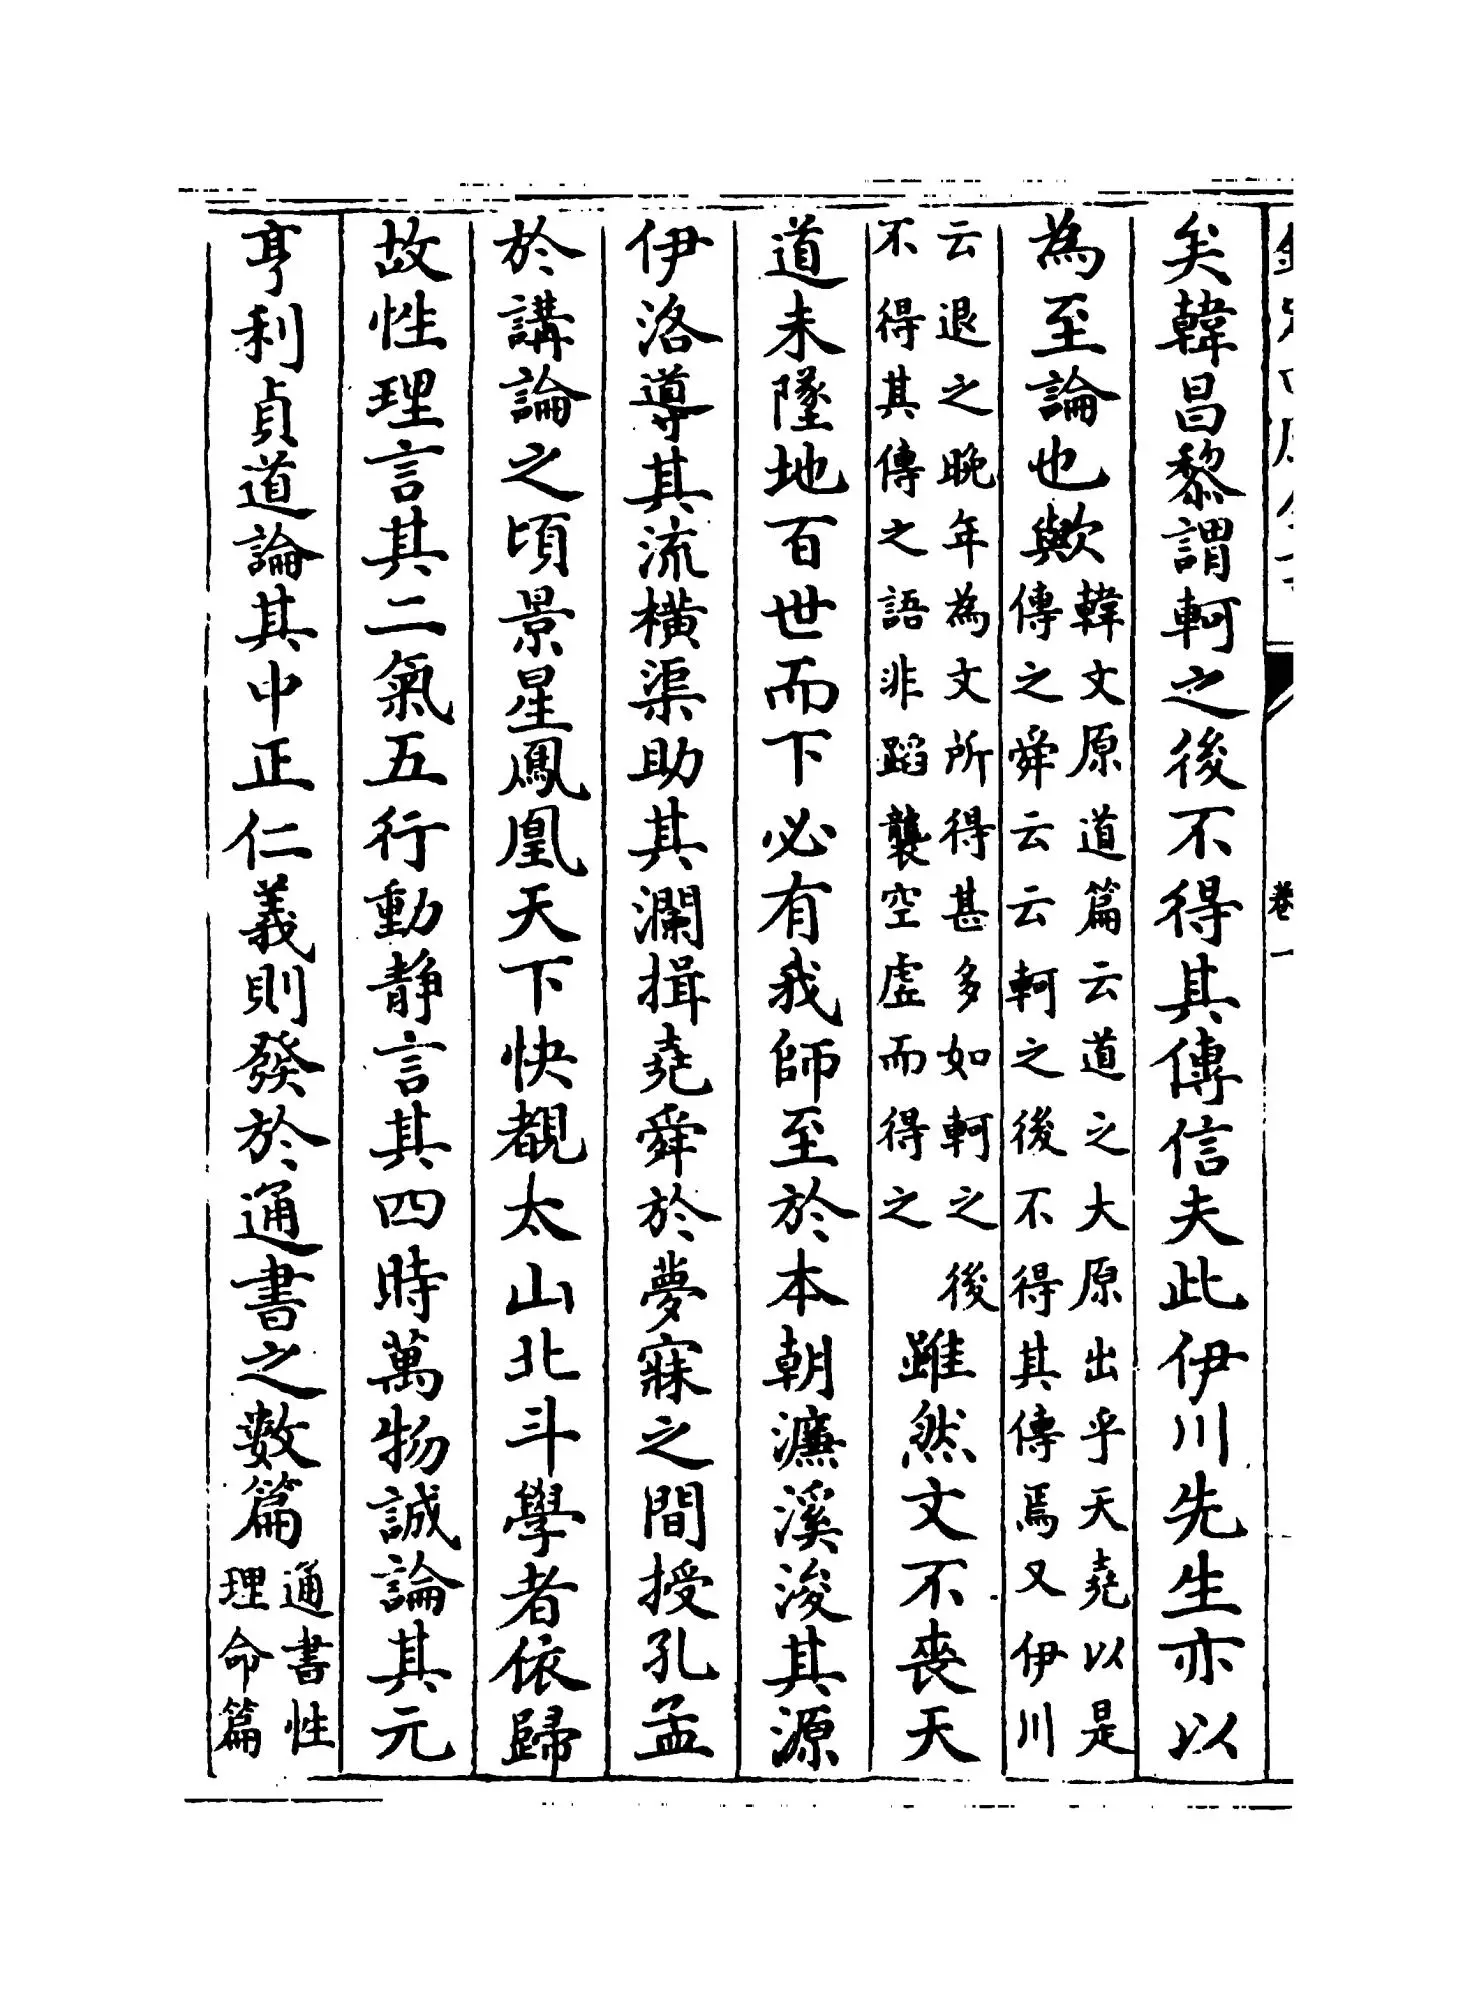 卷一
矣韓昌黎謂軻之後不得其傳信夫此伊川先生亦以
為至論也歟韓文原道篇云道之大原出乎天堯以是
傳之舜云云軻之後不得其傳焉又伊川
云退之晚年為文所得甚多如軻之後
不得其傳之語非蹈襲空虛而得之雖然文不喪天
道未墜地百世而下必有我師至於本朝濂溪浚其源
伊洛導其流橫渠助其瀾揖堯舜於夢寐之間授孔孟
於講論之頃景星鳳凰天下快覩太山北斗學者依歸
故性理言其二氣五行動静言其四時萬物誠論其元
亨利貞道論其中正仁義則發於通書之數篇通書性
理命篇